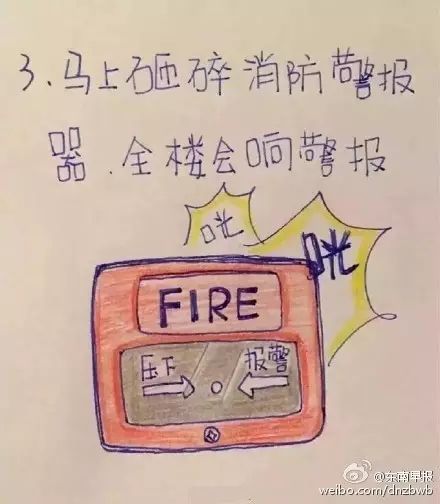 3.马上砸碎消防警报
器.全楼会响警报
咣
咣
FIRE
压下 报警
@东南早报
weibo.com/dnzbwb